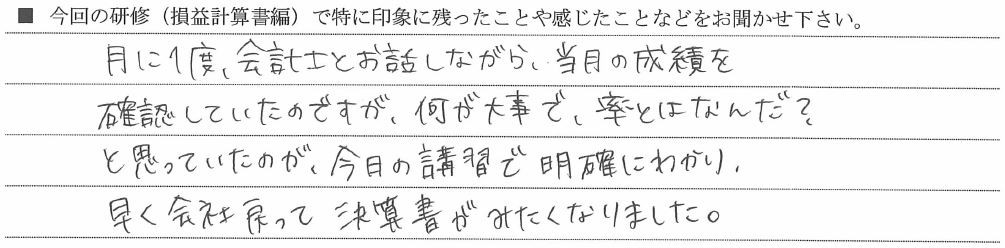 ■ 今回の研修（損益計算書編）で特に印象に残ったことや感じたことなどをお聞かせ下さい。
月に1度、会計士とお話しながら、当月の成績を
確認していたのですが、何が大事で、率とはなんだ？
と思っていたのが、今日の講習で明確にわかり、
早く会社戻って決算書がみたくなりました。